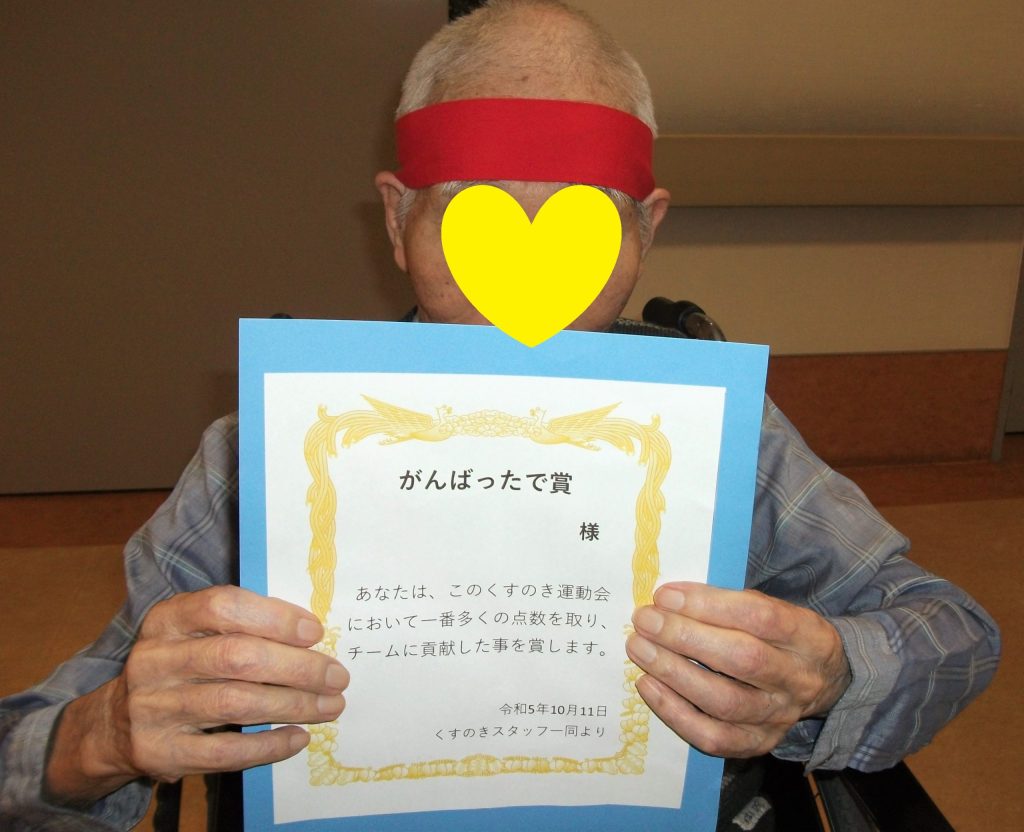 がんばったで賞
様
あなたは、このくすのき運動会
において一番多くの点数を取り、
チームに貢献した事を賞します。
令和5年10月11日
くすのきスタッフ一同より